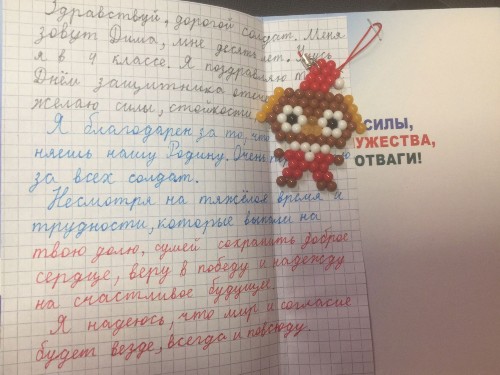 Здравствуй, дорогой солдат. Меня
зовут Дима, мне десять лет. Учусь
я в 4 классе. Я поздравляю
Днём защитника
желаю силы, стойкости
Я благодарен за то, что
няешь нашу Родину. Очень
за всех солдат.
Несмотря на тяжёлое время и
трудности, которые выпали на
твою долю, сумей сохранить доброе
сердце, веру в победу и надежду
на счастливое будущее.
Я надеюсь, что мир и согласие
будет везде, всегда и повсюду.
СИЛЫ,
УЖЕСТВА,
ОТВАГИ!